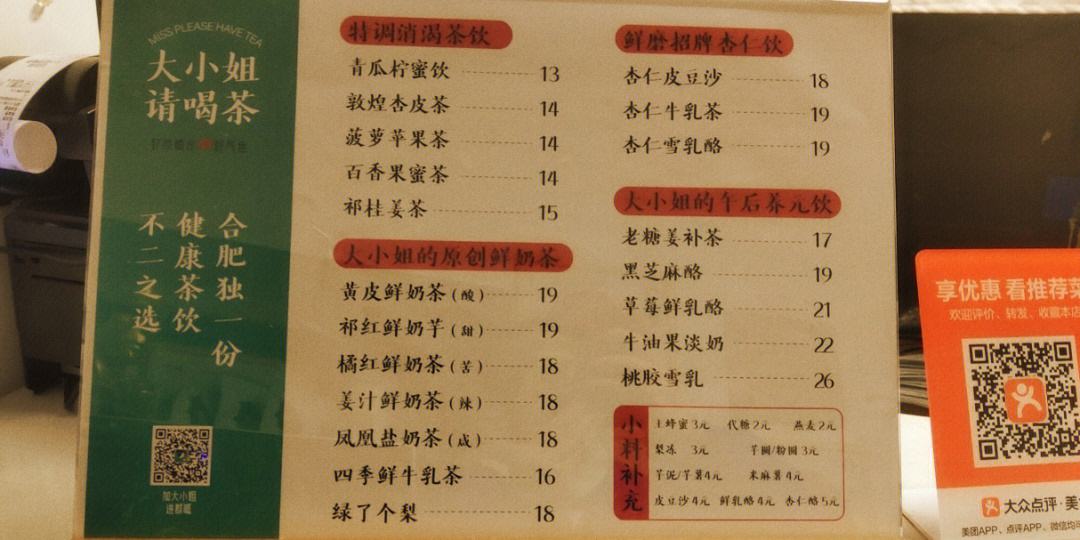 MISS PLEASE HAVE TEA
大小姐
请喝茶
合肥独一份
健康茶饮
不二之选
加大小姐
进群喔
特调消渴茶饮
青瓜柠蜜饮 13
敦煌杏皮茶 14
菠萝苹果茶 14
百香果蜜茶 14
祁桂姜茶 15
大小姐的原创鲜奶茶
黄皮鲜奶茶(酸) 19
祁红鲜奶芋(甜) 19
橘红鲜奶茶(苦) 18
姜汁鲜奶茶(辣) 18
凤凰盐奶茶(咸) 18
四季鲜牛乳茶 16
绿了个梨 18
鲜磨招牌杏仁饮
杏仁皮豆沙 18
杏仁牛乳茶 19
杏仁雪乳酪 19
大小姐的午后养元饮
老糖姜补茶 17
黑芝麻酪 19
草莓鲜乳酪 21
牛油果淡奶 22
桃胶雪乳 26
小料补充
土蜂蜜3元 代糖2元 燕麦2元
梨冻 3元 芋圆/粉圆3元
芋泥/芋薯4元 米麻薯4元
皮豆沙4元 鲜乳酪4元 杏仁酪5元
享优惠 看推荐菜
欢迎评价、转发、收藏本店
大众点评·美
美团APP、点评APP、微信均可